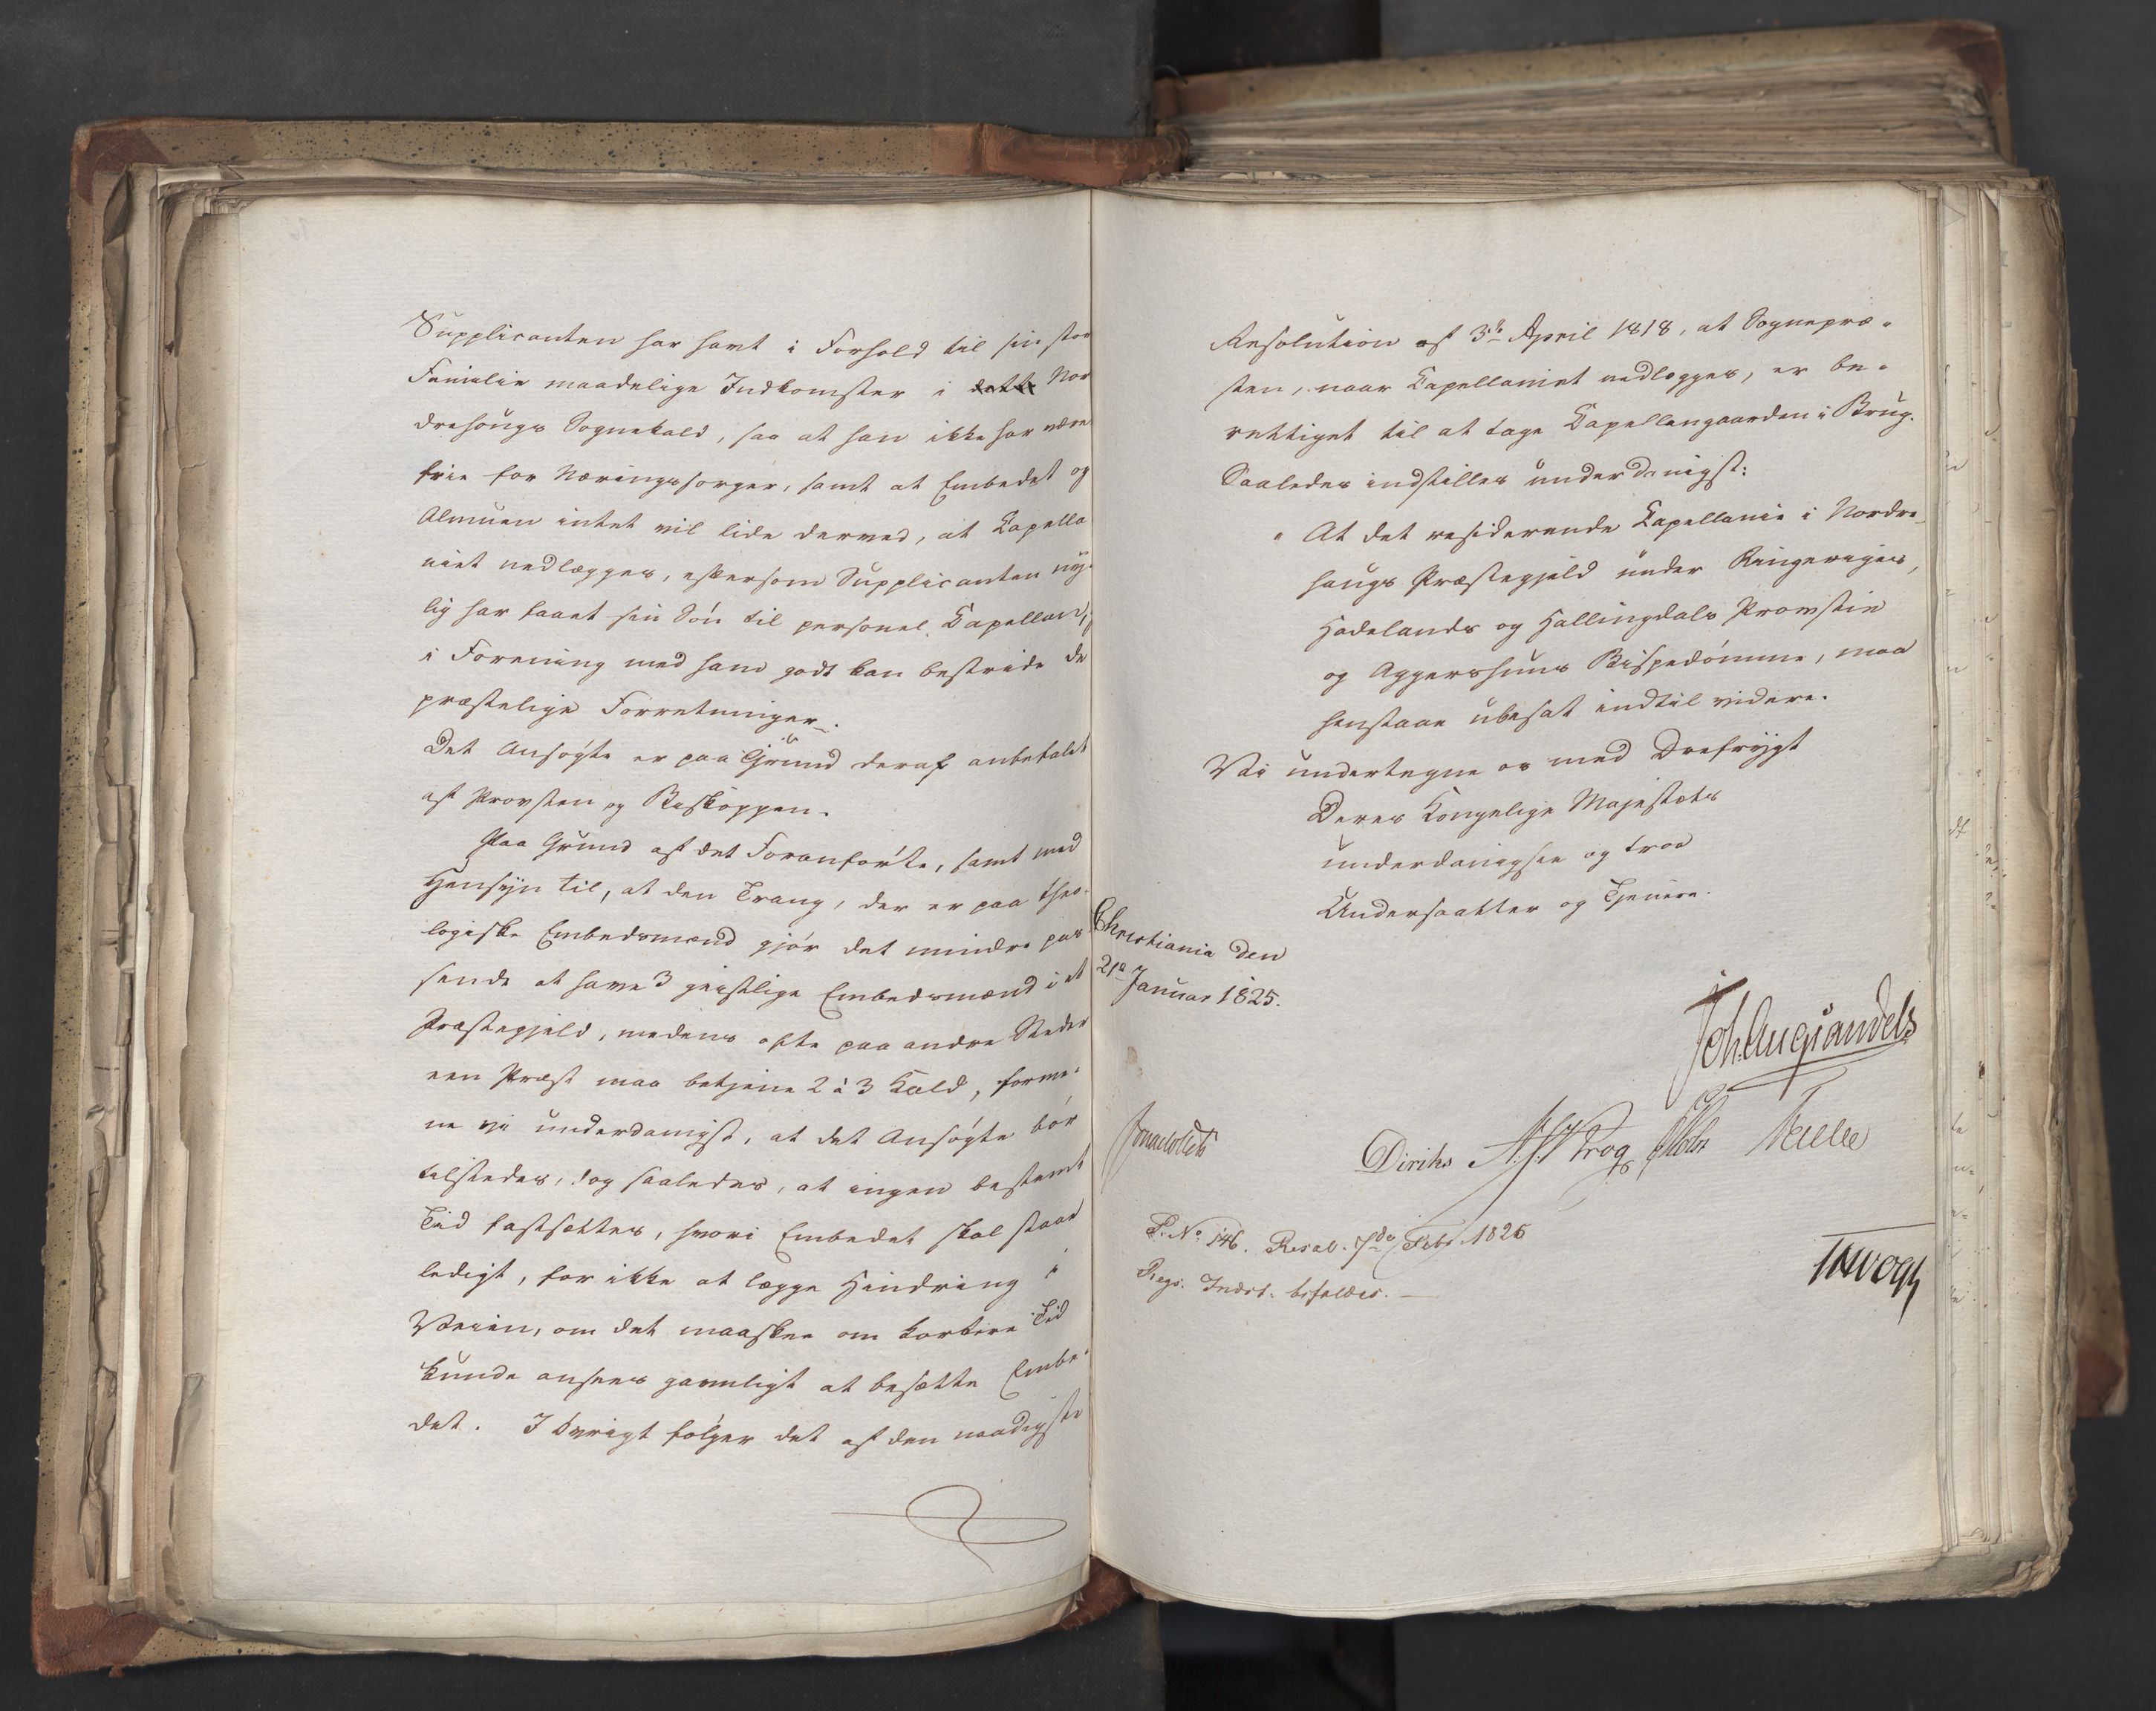 Supplicanten har havt i Forhold til sin stor
Familie maadelige Indkomster i dette Nor
drehougs Sognekald, saa at han ikke har været
frie for Næringssorger, samt at Embedet og
Almuen intet vil lide derved, at Capella
niet nedlægges, eftersom Supplicanten nÿ-
lig har faaet sin Søn til personel Capellan,
i Forening med ham godt kan bestride de
præstelige Forretninger.
Det Ansøgte er paa Grund deraf anbefalet
af Provsten og Biskoppen.
Paa Grund af det Foranførte, samt med
Hensÿn til, at den Trang, der er paa theo-
logiske Embedsmænd gjør det mindre pas
sende at have 3 geistlige Embedsmænd i et
Præstegjeld, medens ofte paa andre Steder
een Præst maa betjene 2 à 3 Kald, forme-
ne vi underdanigst, at det Ansøgte bør
tilstedes, dog saaledes, at ingen bestemt
Tid fastsættes, hvori Embedet skal staae
ledigt, for ikke at lægge Hindring i
Veien, om det maaskee om kortere Tid
kunde ansees gavnligt at besætte Embe-
det. I øvrigt følger det af den naadigste
Resolution af 3de April 1818, at Sognepræ-
sten, naar Capellaniet nedlægges, er be-
rettiget til at tage Capellangaarden i Brug.
Saaledes indstilles underdanigst:
" At det residerende Capellanie i Nordre-
haugs Præstegjeld under Ringeriges,
Hadelands og Hallingdals Provstie
og Aggershuus Bispedømme, maa
henstaae ubesat indtil videre.
Vi undertegne os med Ærefrÿgt
Deres Kongelige Majestæts
underdanigste og troe
Undersaatter og Tjenere.
Christiania den
21de Januar 1825.
Joh: Aug: Sandels
Diriks A. J. Krog Motzfeldt
P. No 146. Resol. 7de Febr. 1825
Regj. Indst. bifaldes. —